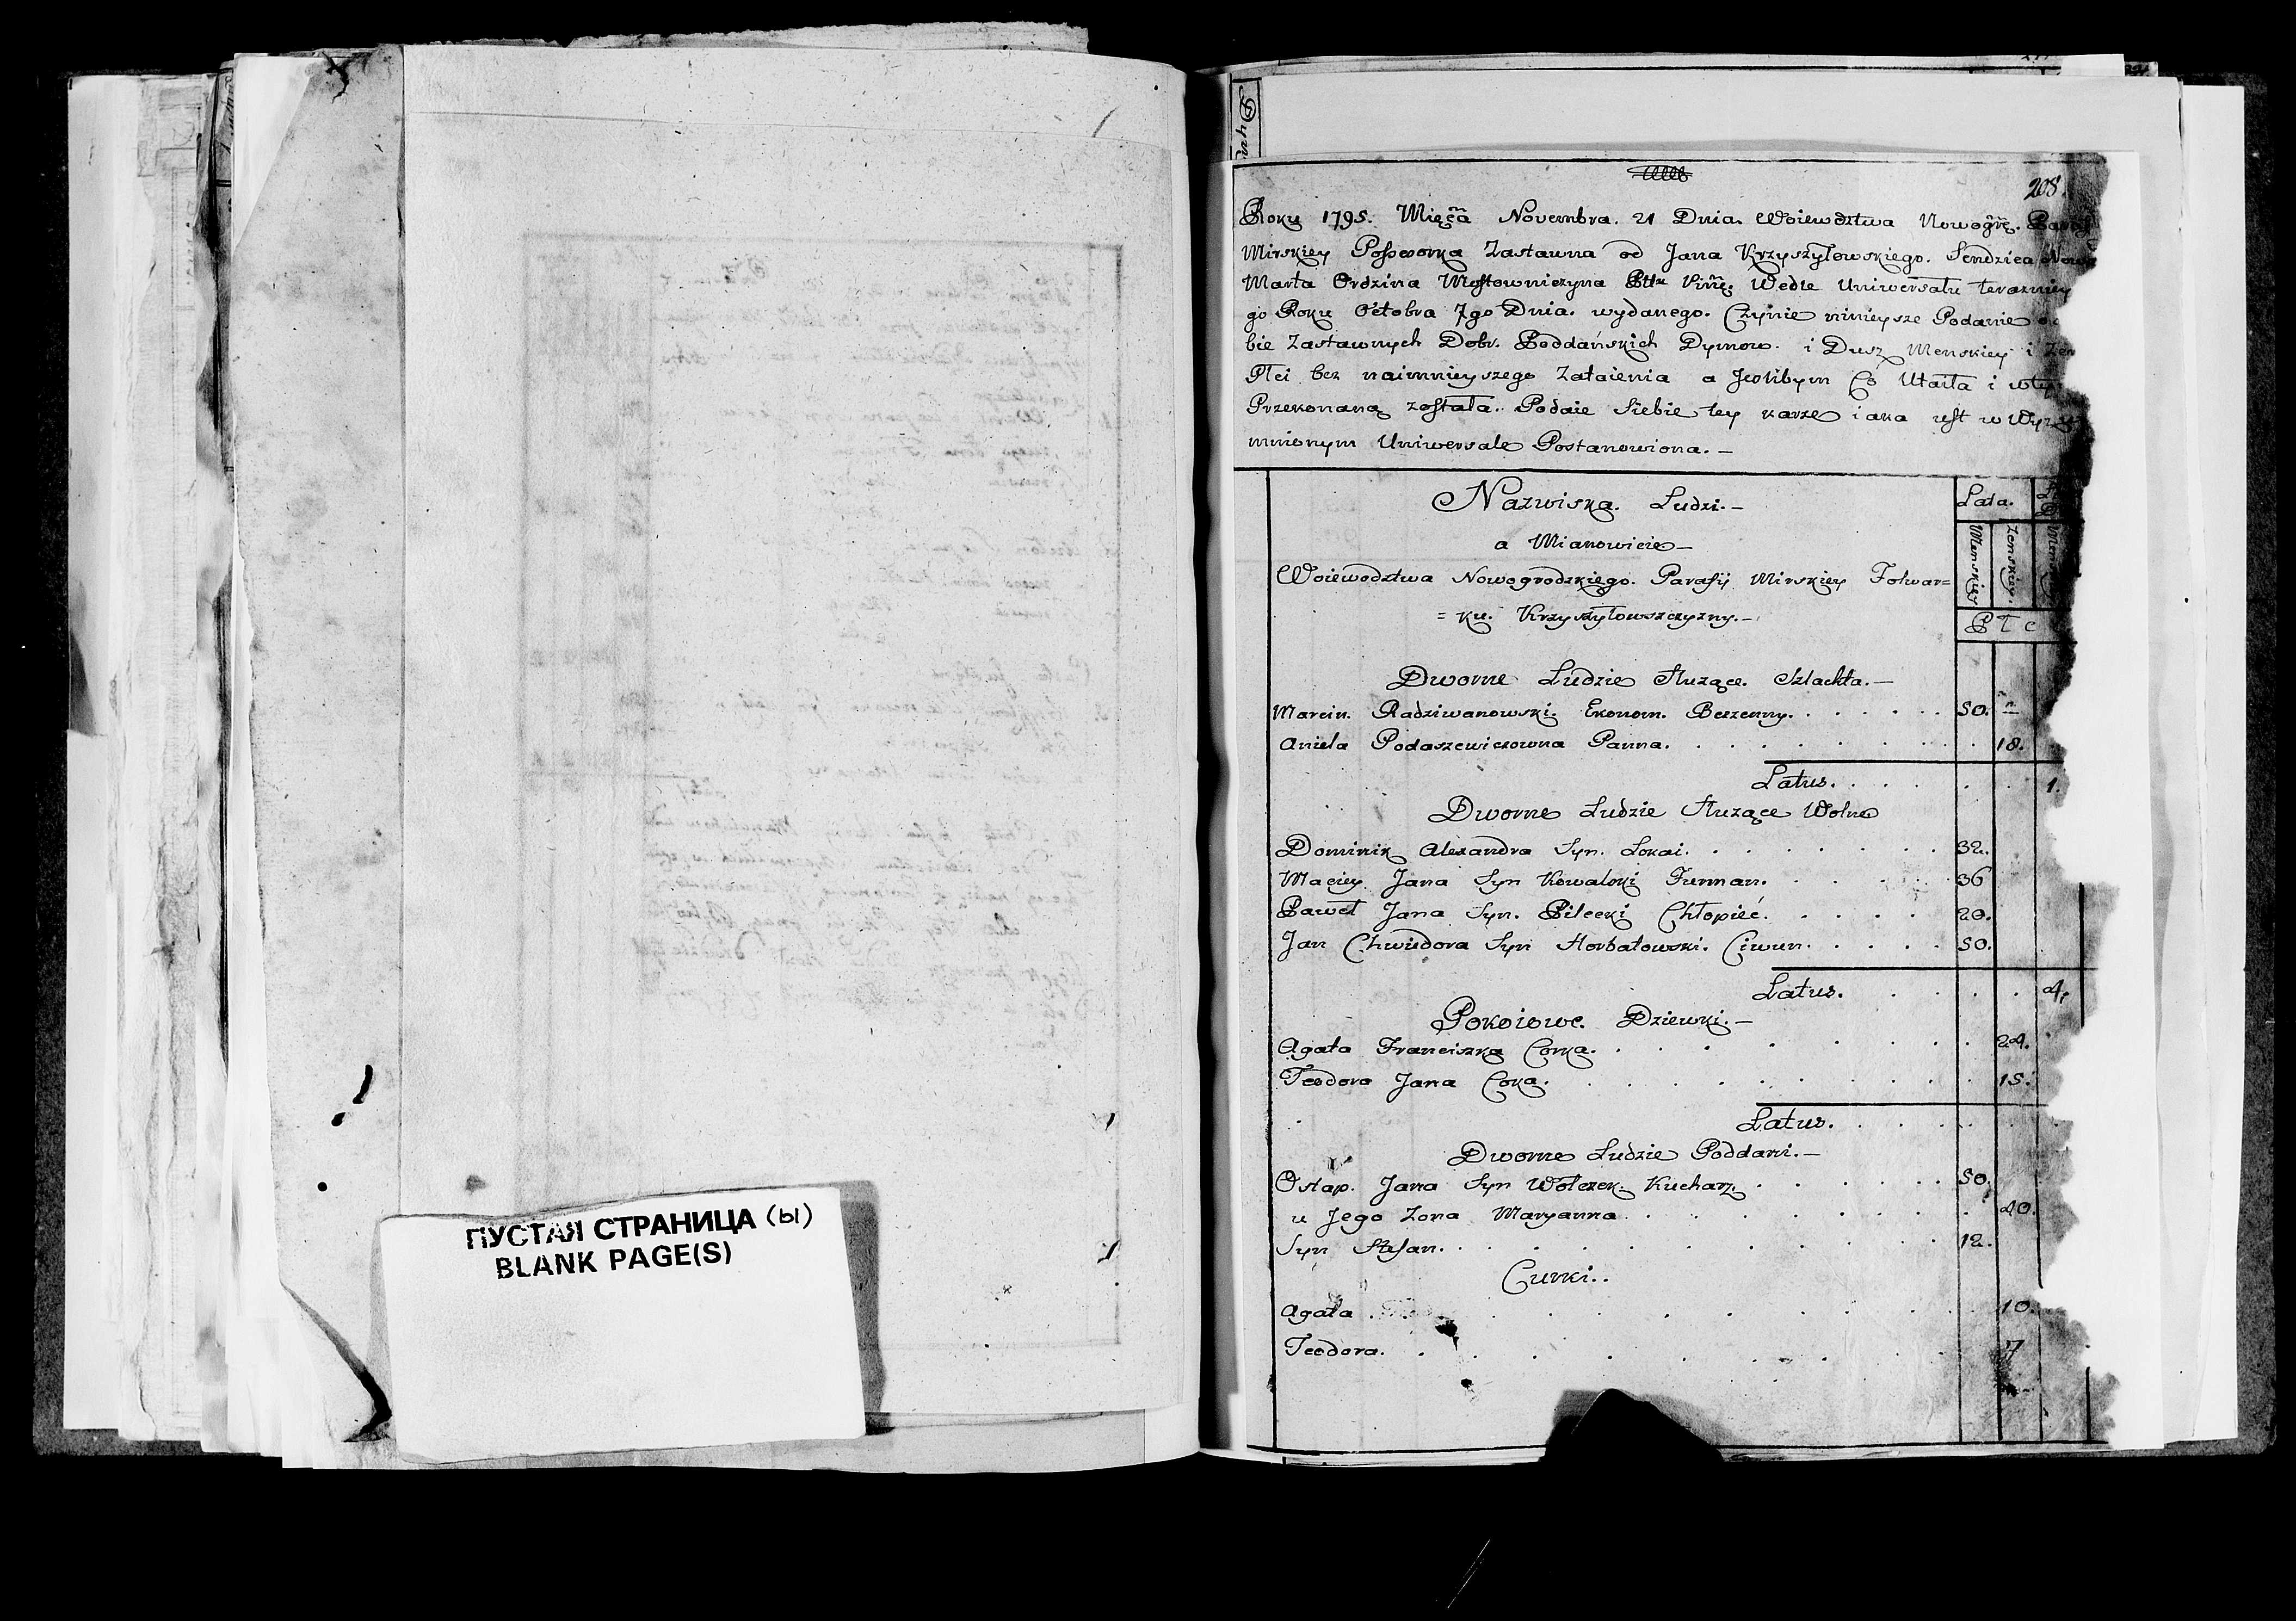 ПУСТАЯ СТРАНИЦА (Ы)
BLANK PAGE(S)
Dym
208.
Roku 1795. Mięsa Novembra. 21 Dnia. Woiewodztwa Nowogrē.
Mirskiey Possesorka Zastawna od Jana Krzyszyłowskiego. Sendzica
Marta Ordzina Mostowniczyna Wedle Uniwersału terazniey
go Roku Octobra 7go Dnia. wydanego. Czynie ninieysze Podanie
bie Zastawnych Dobr. Poddańskich Dymow. i Dusz Menskiey i
Płci bez naimnieyszego Zataienia a Jezlibym Co Utaiła i
Przekonaną została. Podaie Siebie tey karze iaka iest w
mnionym Uniwersale Postanowiona. -
Nazwiska. Ludzi. -
Lata.
a Mianowicie -
Menskiey
Zenskiey.
Woiewodztwa Nowogrodzkiego. Parafij Mirskiey Folwar=
= ku. Krzyszyłowszczyzny. -
P ł c
Dworne Ludzie Słuzące. Szlachta. -
Marcin. Radziwanowski. Ekonom. Bezzenny. 50.
Aniela Podaszewiczowna Panna. 18.
Latus. 1.
Dworne Ludzie Słuzące Wolne
Dominik Alexandra Syn. Lokai. 32.
Maciey Jana Syn Kowalski Furman. 36
Paweł Jana Syn. Pilecki Chłopiec. 20.
Jan Chwiedora Syn Horbatowski. Ciwun. 50.
Latus. 4.
Pokoiowe. Dziewki. -
Agata Franciszka Corka. 24.
Teodora Jana Coka. 15.
Latus.
Dworne Ludzie Poddani. -
Ostap. Jana Syn Wołczek. Kucharz. 50.
u Jego Zona Maryanna. 40.
Syn Stefan. 12.
Curki..
Agata. 10.
Teodora. 7